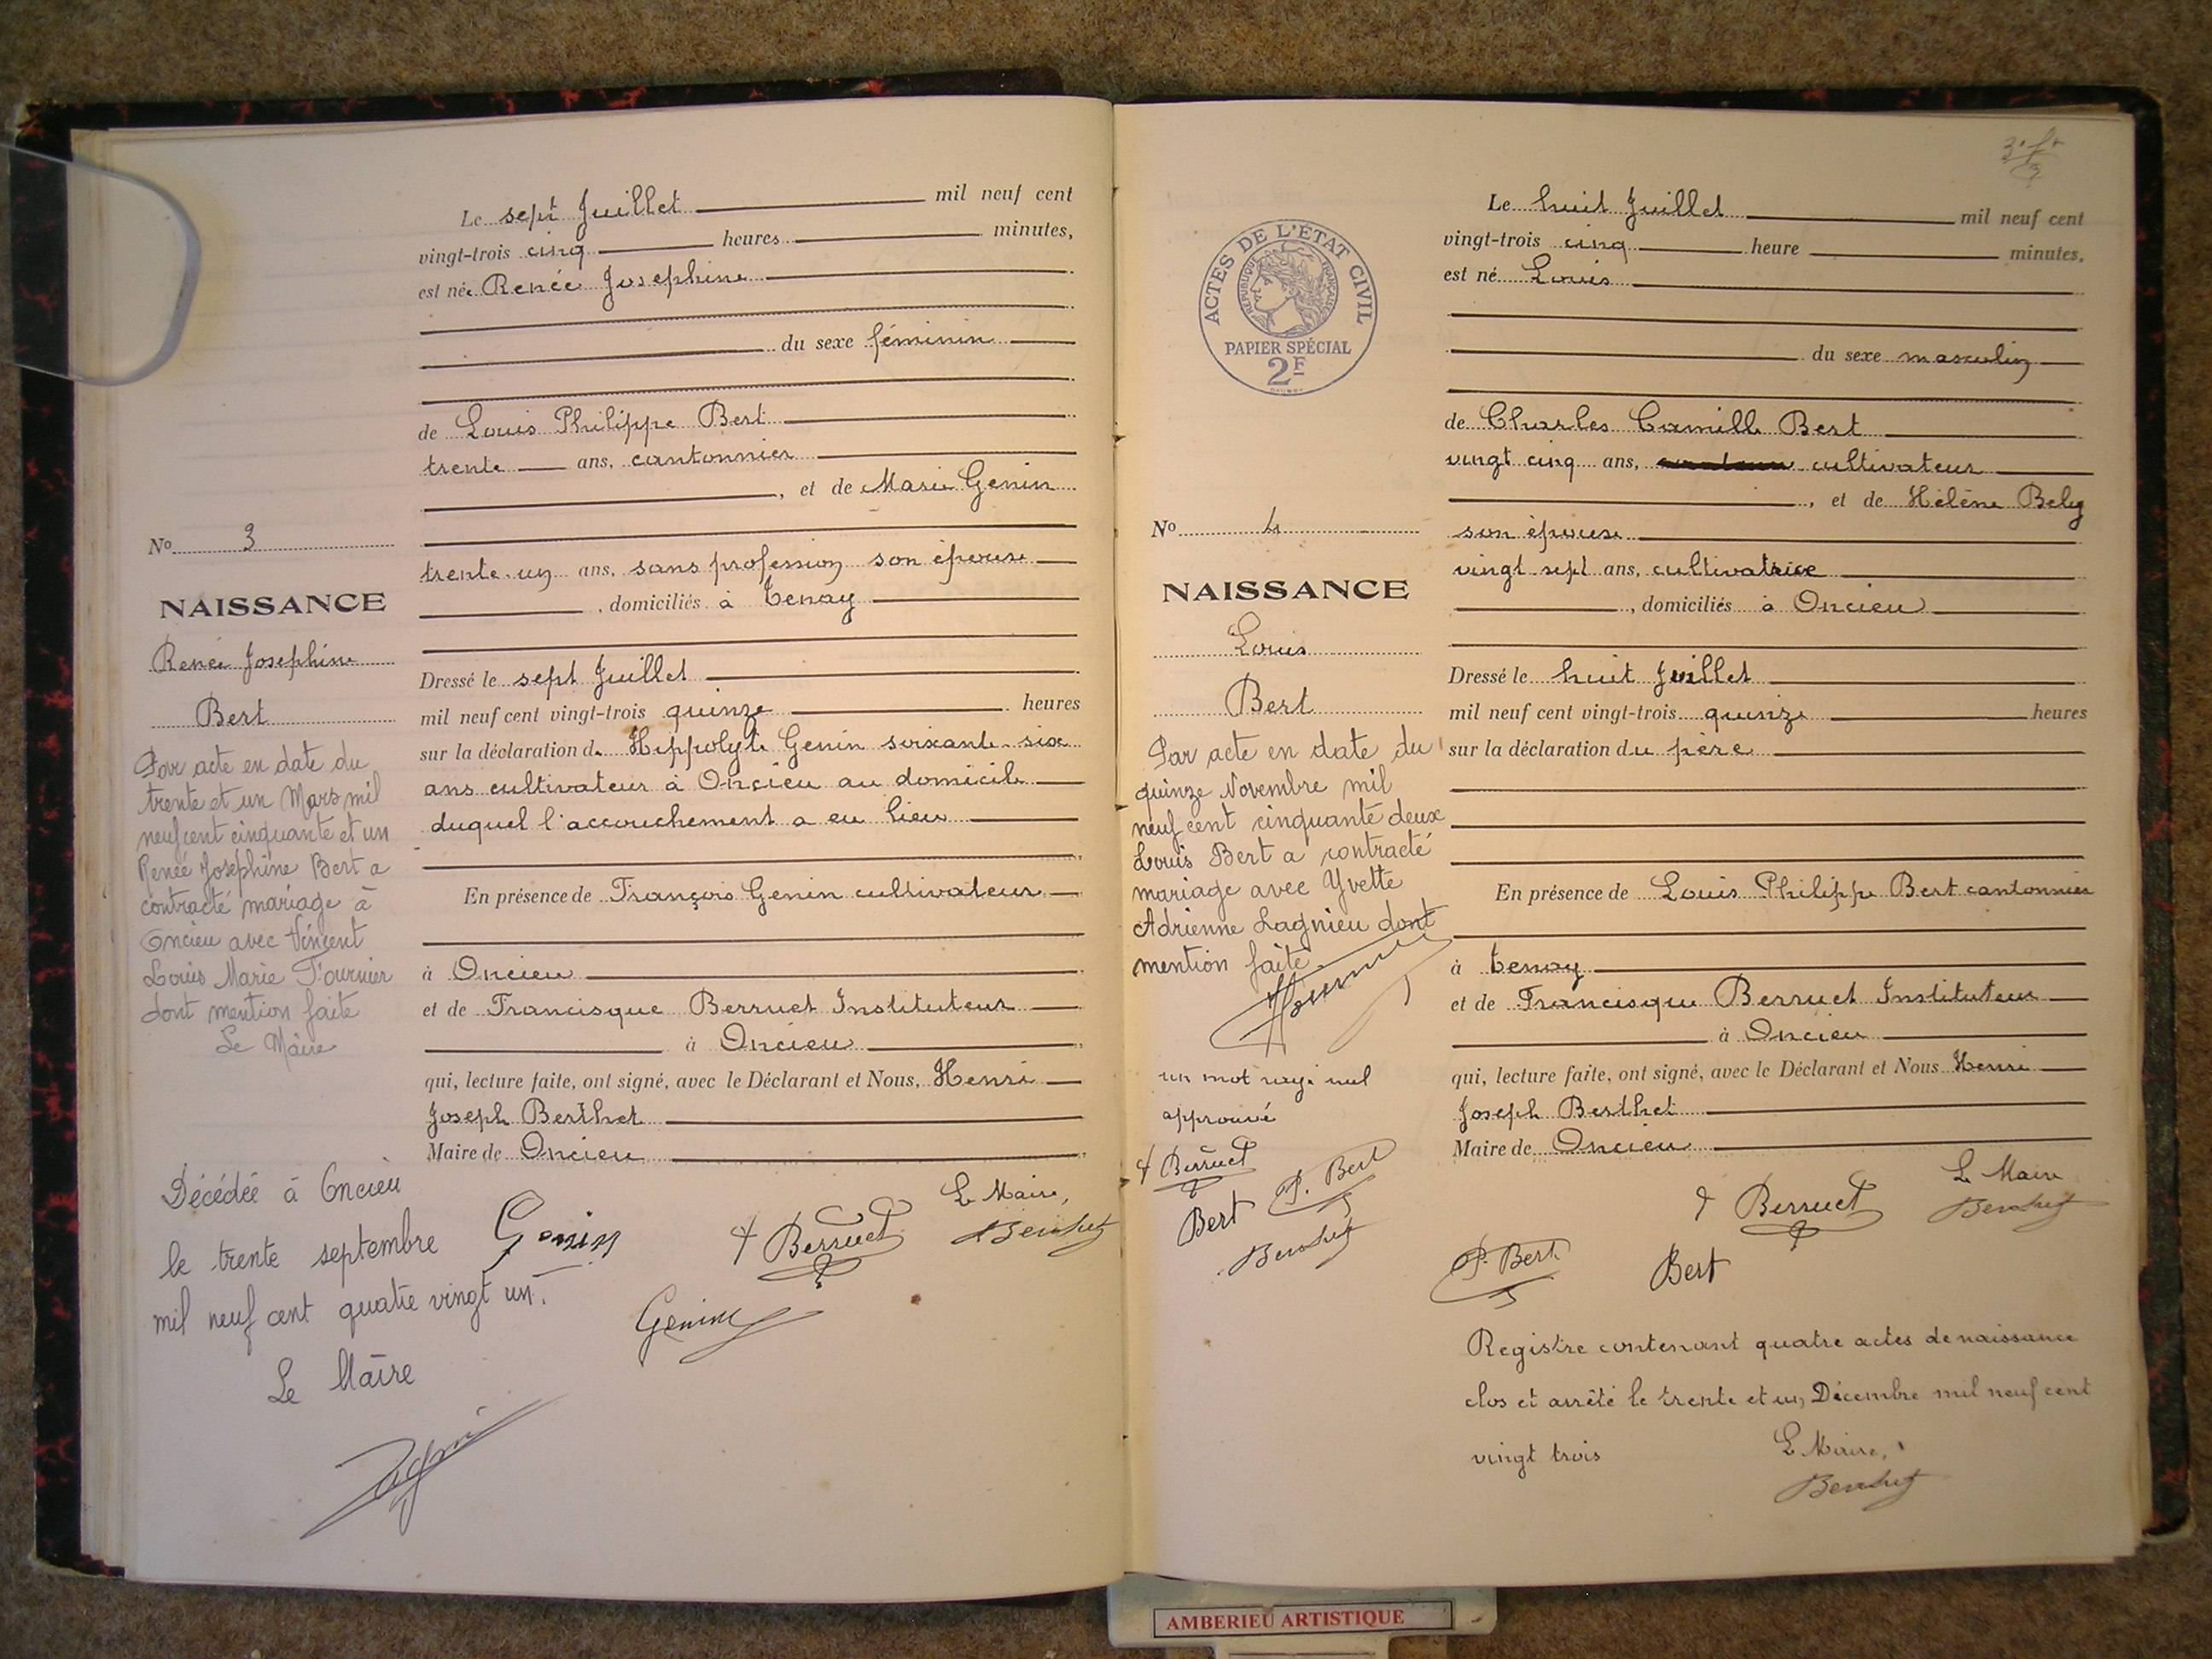 Le sept Juillet mil neuf cent
vingt-trois cinq heures minutes,
est née Renée Josephine
du sexe féminin
de Louis Philippe Bert
trente ans, cantonnier
, et de Marie Genin
trente-un ans, sans profession son épouse
, domiciliés à Tenay
Dressé le sept Juillet
mil neuf cent vingt-trois quinze heures
sur la déclaration d. Hippolyte Genin soixante-six
ans cultivateur à Oncieu au domicile
duquel l'accouchement a eu lieu
En présence de François Genin cultivateur
à Oncieu
et de Francisque Berruet Instituteur
à Oncieu
qui, lecture faite, ont signé, avec le Déclarant et Nous, Henri
Joseph Berthet
Maire de Oncieu
Le Maire,
Genin
Berruet
Berthet
Genin
No 3
NAISSANCE
Renée Josephine
Bert
Par acte en date du
trente et un Mars mil
neuf cent cinquante et un
Renée Joséphine Bert a
contracté mariage à
Oncieu avec Vincent
Louis Marie Fournier
dont mention faite
Le Maire
Décédée à Oncieu
le trente septembre
mil neuf cent quatre vingt un.
Le Maire
ACTES DE L'ÉTAT CIVIL
REPUBLIQUE FRANÇAISE
PAPIER SPÉCIAL
2F
No 4
NAISSANCE
Louis
Bert
Par acte en date du
quinze Novembre mil
neuf cent cinquante deux
Louis Bert a contracté
mariage avec Yvette
Adrienne Lagnieu dont
mention faite.
un mot rayé nul
approuvé
Berruet
Bert P. Bert
Berthet
Le huit Juillet mil neuf cent
vingt-trois cinq heure minutes,
est né Louis
du sexe masculin
de Charles Camille Bert
vingt cinq ans, cultivateur
, et de Hélène Bely
son épouse
vingt sept ans, cultivatrice
, domiciliés à Oncieu
Dressé le huit Juillet
mil neuf cent vingt-trois quinze heures
sur la déclaration du père
En présence de Louis Philippe Bert cantonnier
à Tenay
et de Francisque Berruet Instituteur
à Oncieu
qui, lecture faite, ont signé, avec le Déclarant et Nous Henri
Joseph Berthet
Maire de Oncieu
Le Maire
Berruet
Berthet
P. Bert
Bert
Registre contenant quatre actes de naissance
clos et arrêté le trente et un Décembre mil neuf cent
vingt trois
Le Maire,
Berthet
AMBERIEU ARTISTIQUE